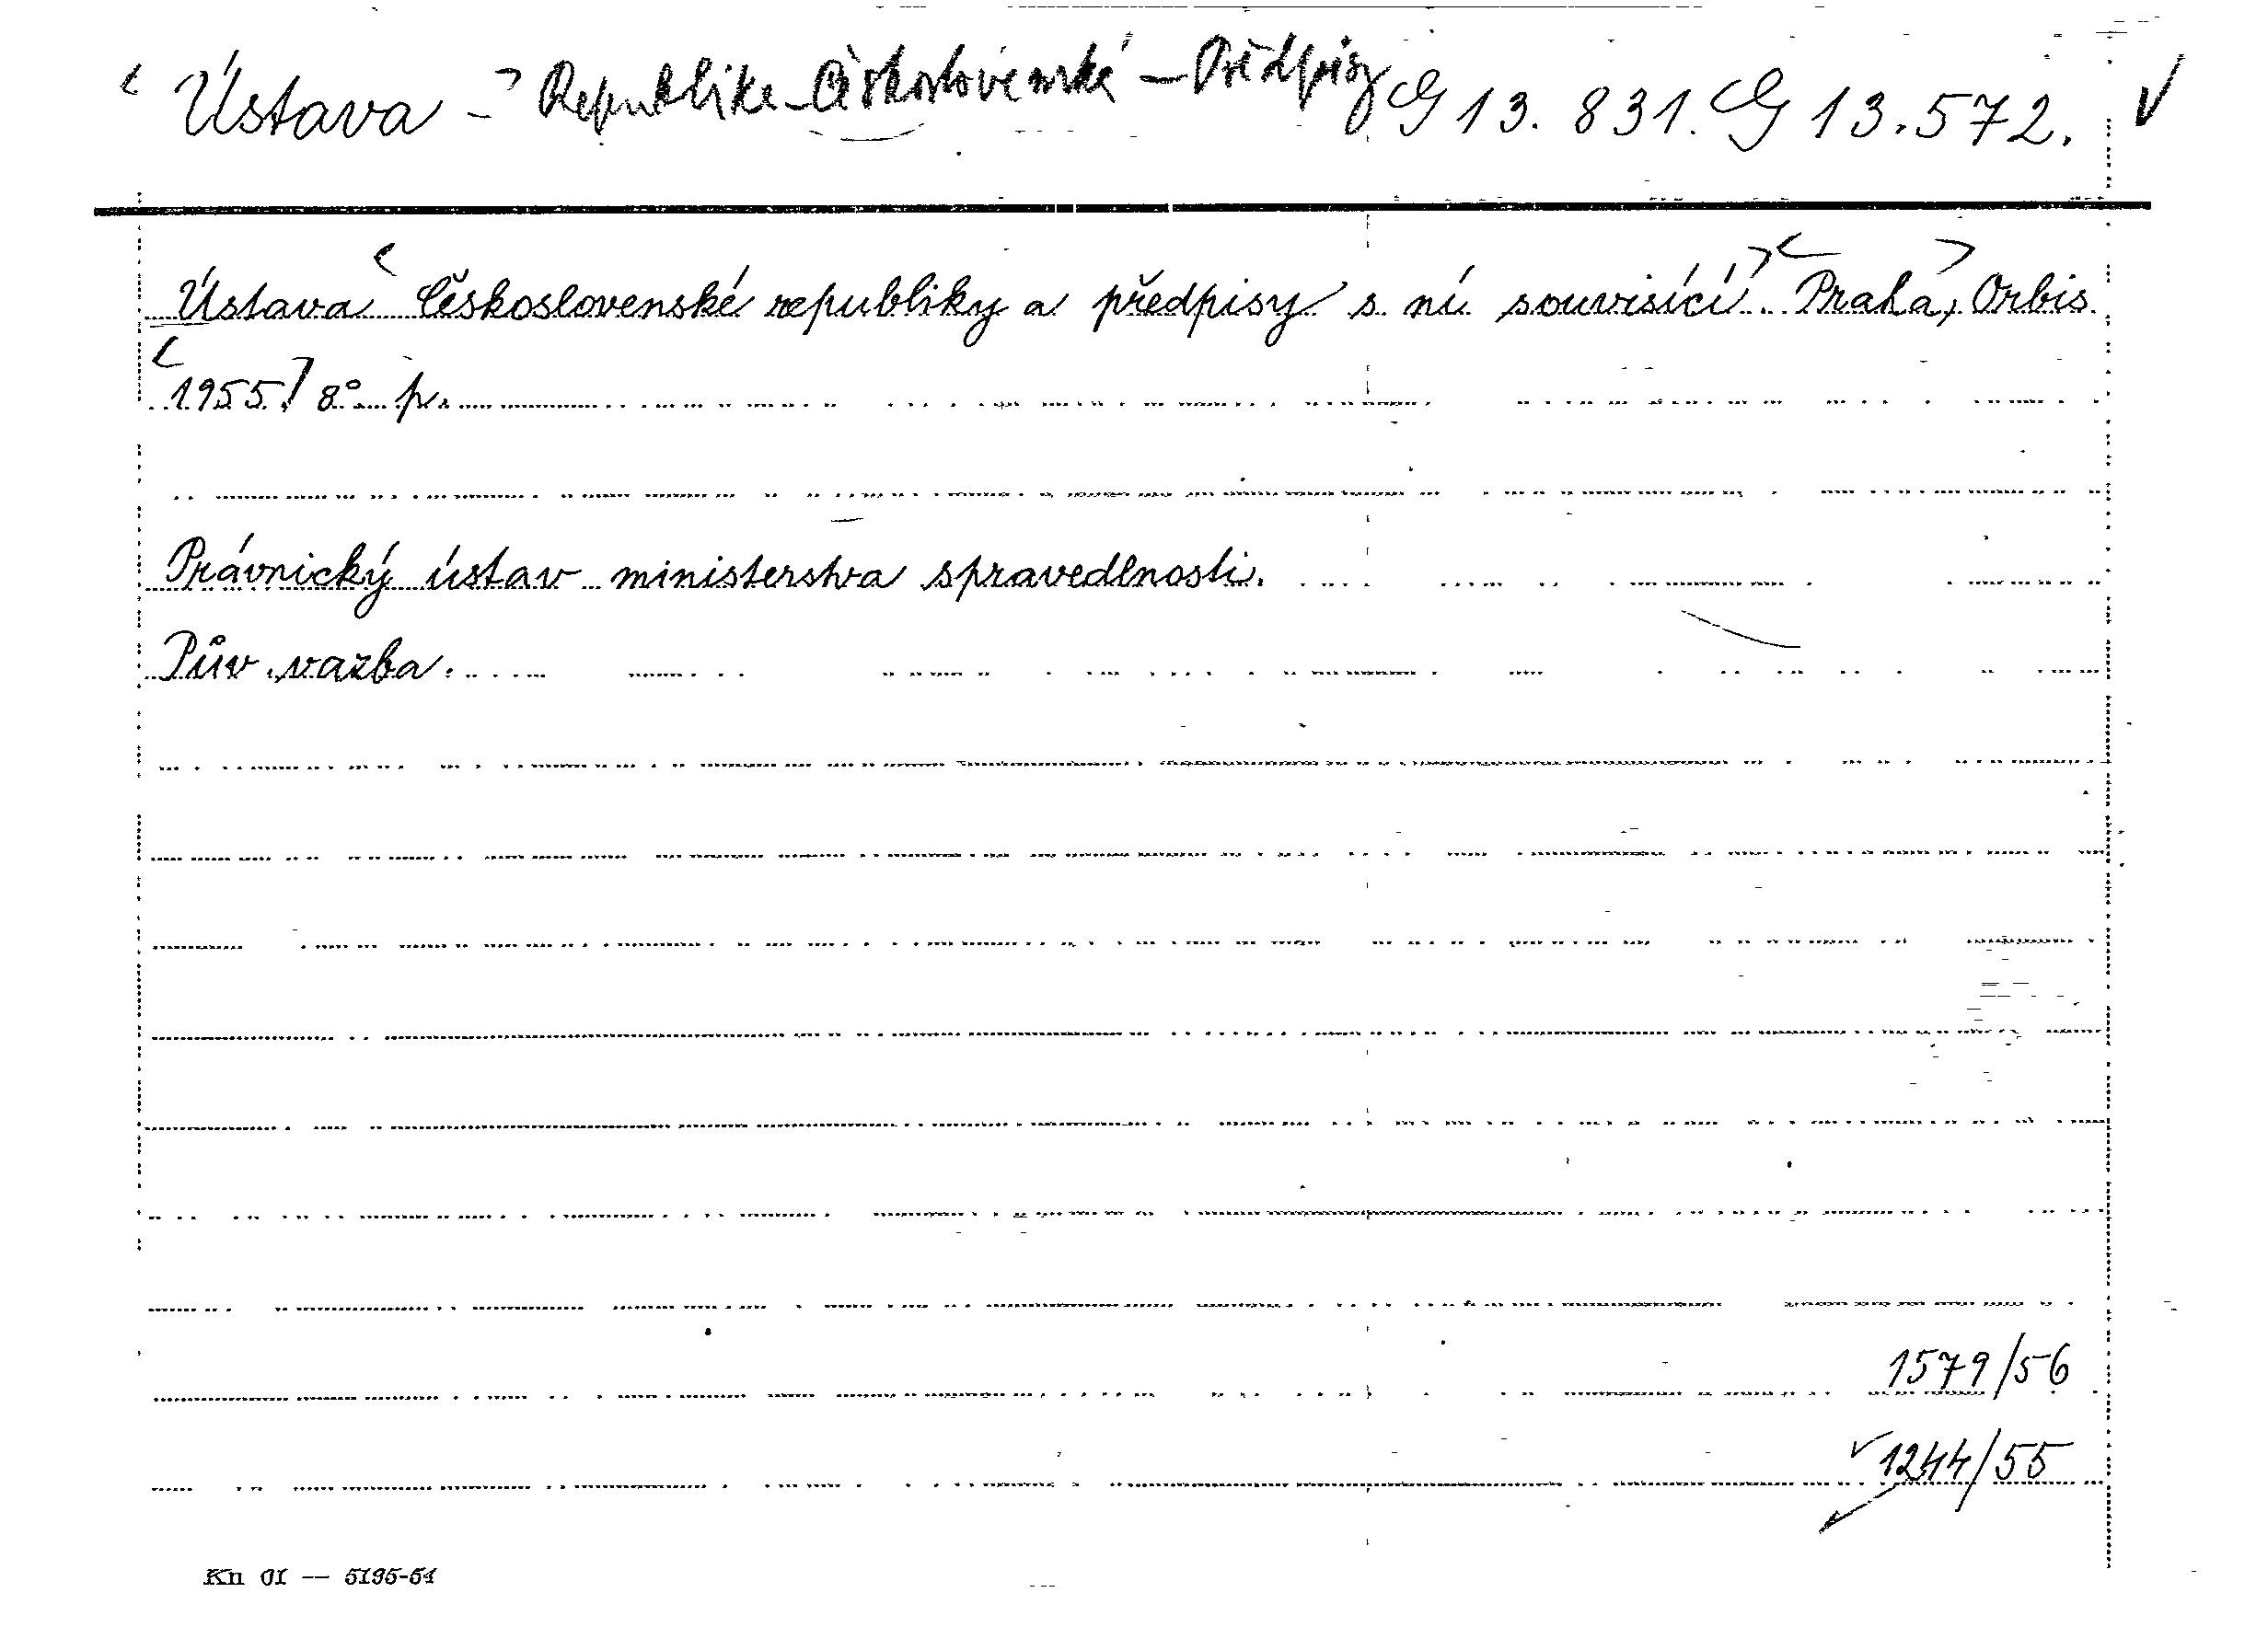 Ústava - Republika Československá - Předpisy G 13.831. G 13.572.
Ústava Československé republiky a předpisy s ní souvisící. Praha, Orbis
1955. 8° p.
Právnický ústav ministerstva spravedlnosti.
Pův. vazba.
1579/56
1244/55
Kn 01 — 5195-54